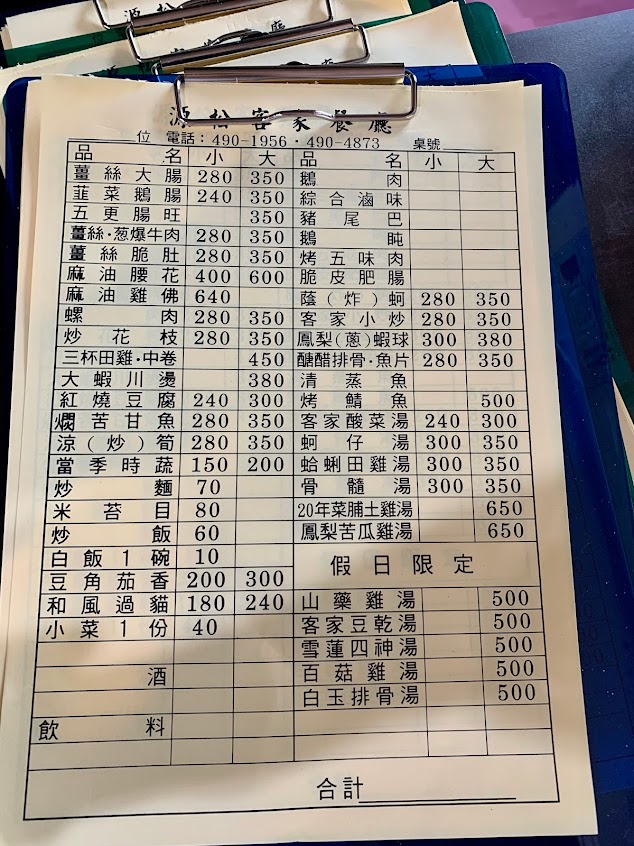 源松客家餐廳
位 電話：490-1956・490-4873 桌號
品名 小 大 品名 小 大
薑絲大腸 280 350 鵝肉
韮菜鵝腸 240 350 綜合滷味
五更腸旺 350 豬尾巴
薑絲・蔥爆牛肉 280 350 鵝肫
薑絲脆肚 280 350 烤五味肉
麻油腰花 400 600 脆皮肥腸
麻油雞佛 640 蔭(炸)蚵 280 350
螺肉 280 350 客家小炒 280 350
炒花枝 280 350 鳳梨(蔥)蝦球 300 380
三杯田雞・中卷 450 醣醋排骨・魚片 280 350
大蝦川燙 380 清蒸魚
紅燒豆腐 240 300 烤鯖魚 500
燜苦甘魚 280 350 客家酸菜湯 240 300
涼(炒)筍 280 350 蚵仔湯 300 350
當季時蔬 150 200 蛤蜊田雞湯 300 350
炒麵 70 骨髓湯 300 350
米苔目 80 20年菜脯土雞湯 650
炒飯 60 鳳梨苦瓜雞湯 650
白飯1碗 10 假日限定
豆角茄香 200 300
和風過貓 180 240 山藥雞湯 500
小菜1份 40 客家豆乾湯 500
雪蓮四神湯 500
酒 百菇雞湯 500
白玉排骨湯 500
飲料
合計